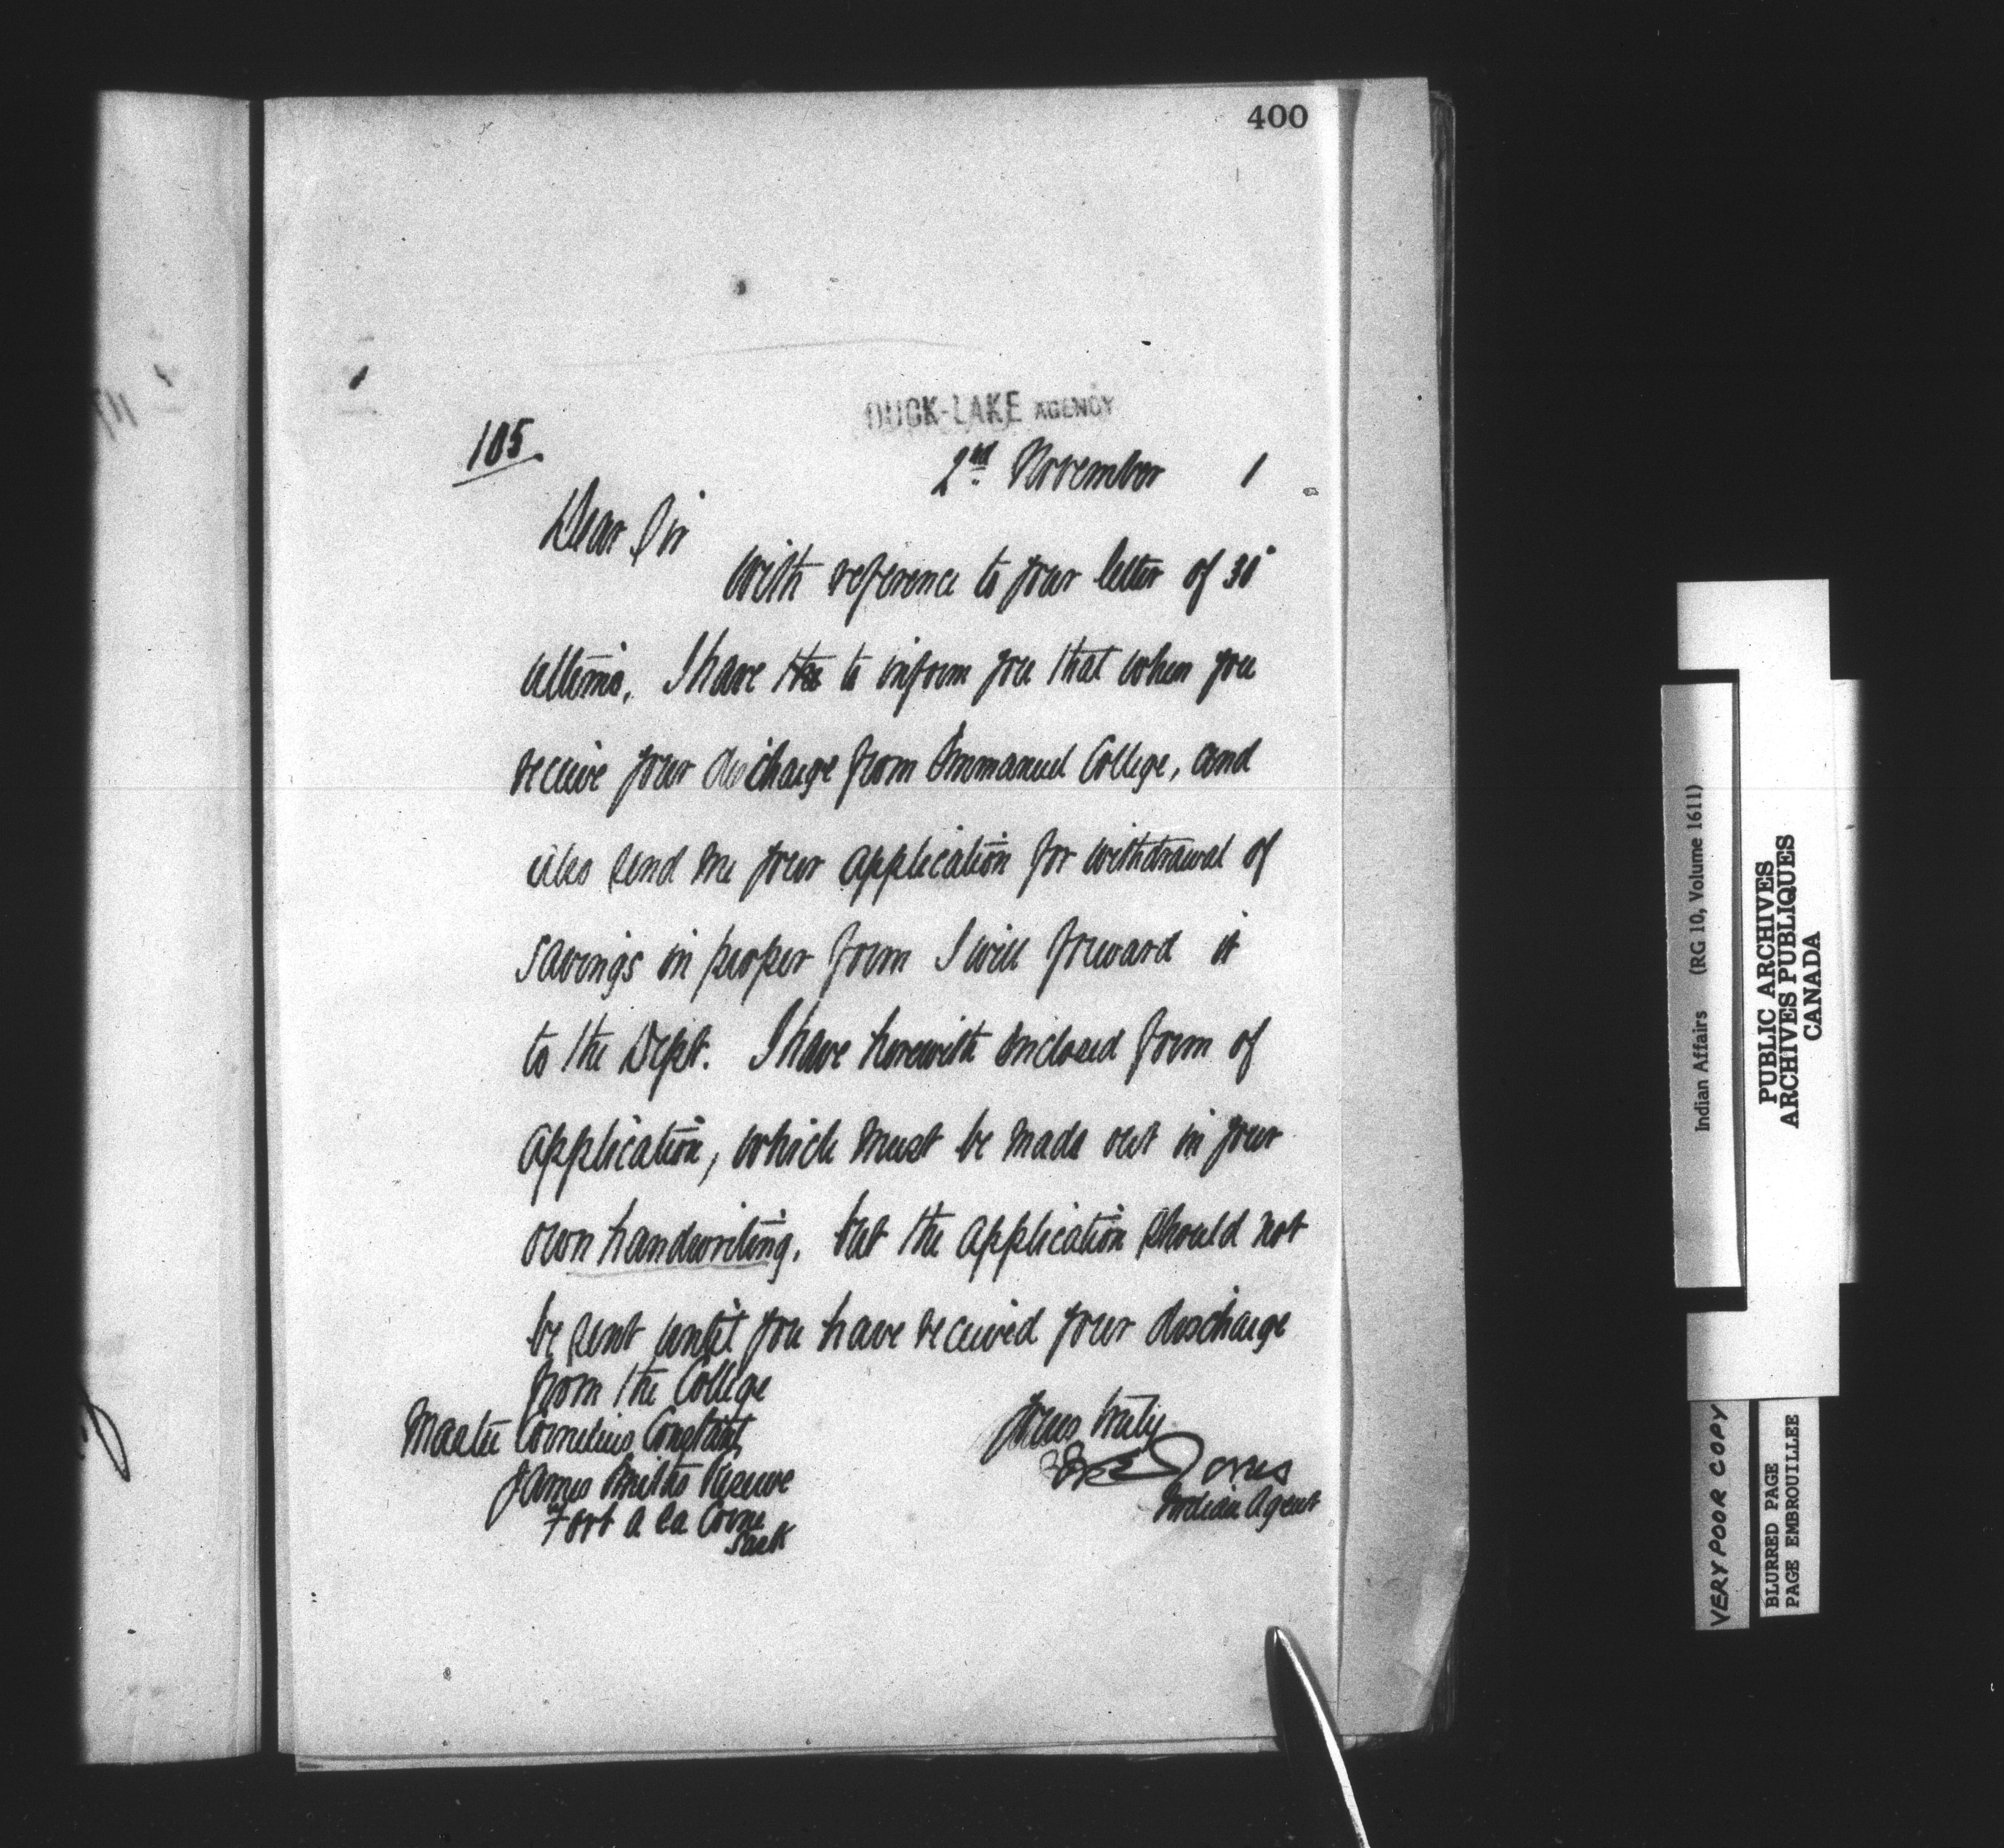 400
DUCK-LAKE AGENCY
105.
2nd November 1
Dear Sir
With reference to your letter of 30
ultimo, I have to inform you that when you
receive your discharge from Emmanuel College, and
also send me your application for withdrawal of
savings in proper form I will forward it
to the Dept. I have herewith enclosed form of
application, which must be made out in your
own handwriting, but the application should not
be sent until you have received your discharge
from the College
Master Cornelius Constant,
James Smiths Reserve
Fort a la Corne
Sask
Yours truly
Jones
Indian Agent
Indian Affairs (RG 10, Volume 1611)
PUBLIC ARCHIVES
ARCHIVES PUBLIQUES
CANADA
VERY POOR COPY
BLURRED PAGE
PAGE EMBROUILLEE